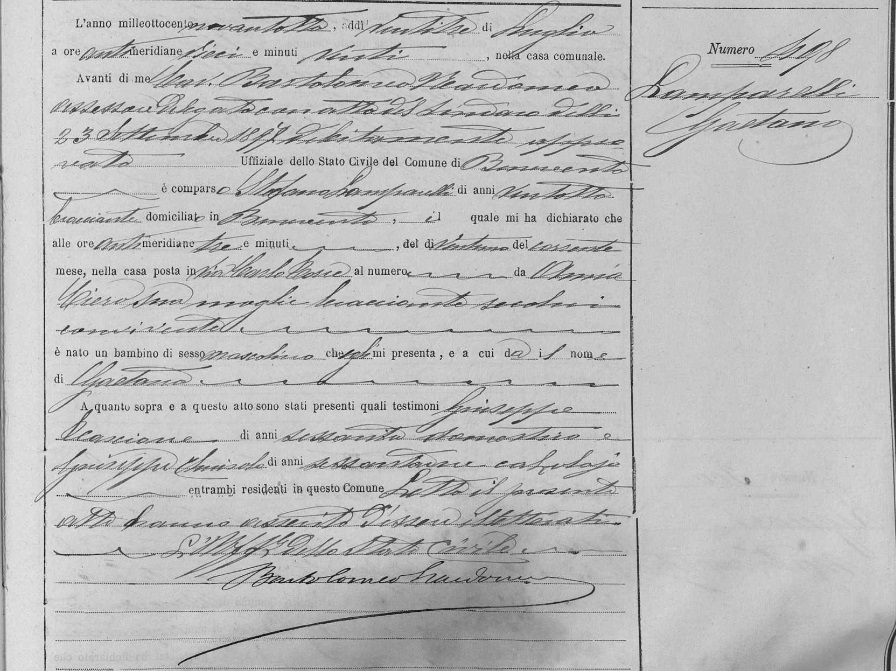 L'anno milleottocento novantotto, addì ventitre di Luglio
a ore antimeridiane dieci e minuti venti, nella casa comunale.
Numero 498
Avanti di me Cav. Bartolomeo
Lamparelli
Gaetano
assessore Delegato con atto del Sindaco delli
23 Settembre 1897 debitamente appro
vato Uffiziale dello Stato Civile del Comune di Benevento
è comparso Stefano Lamparelli di anni ventotto
bracciante domiciliato in Benevento, il quale mi ha dichiarato che
alle ore antimeridiane tre e minuti, del dì ventuno del corrente
mese, nella casa posta in via al numero da Anna
sua moglie bracciante seco lui
convivente
è nato un bambino di sesso mascolino che egli mi presenta, e a cui dà il nome
di Gaetano
A quanto sopra e a questo atto sono stati presenti quali testimoni Giuseppe
di anni sessanta domestico e
Giuseppe di anni calzolajo
entrambi residenti in questo Comune Letto il presente
atto hanno asserito d'essere illetterati
L'Uff. dello Stato Civile
Bartolomeo